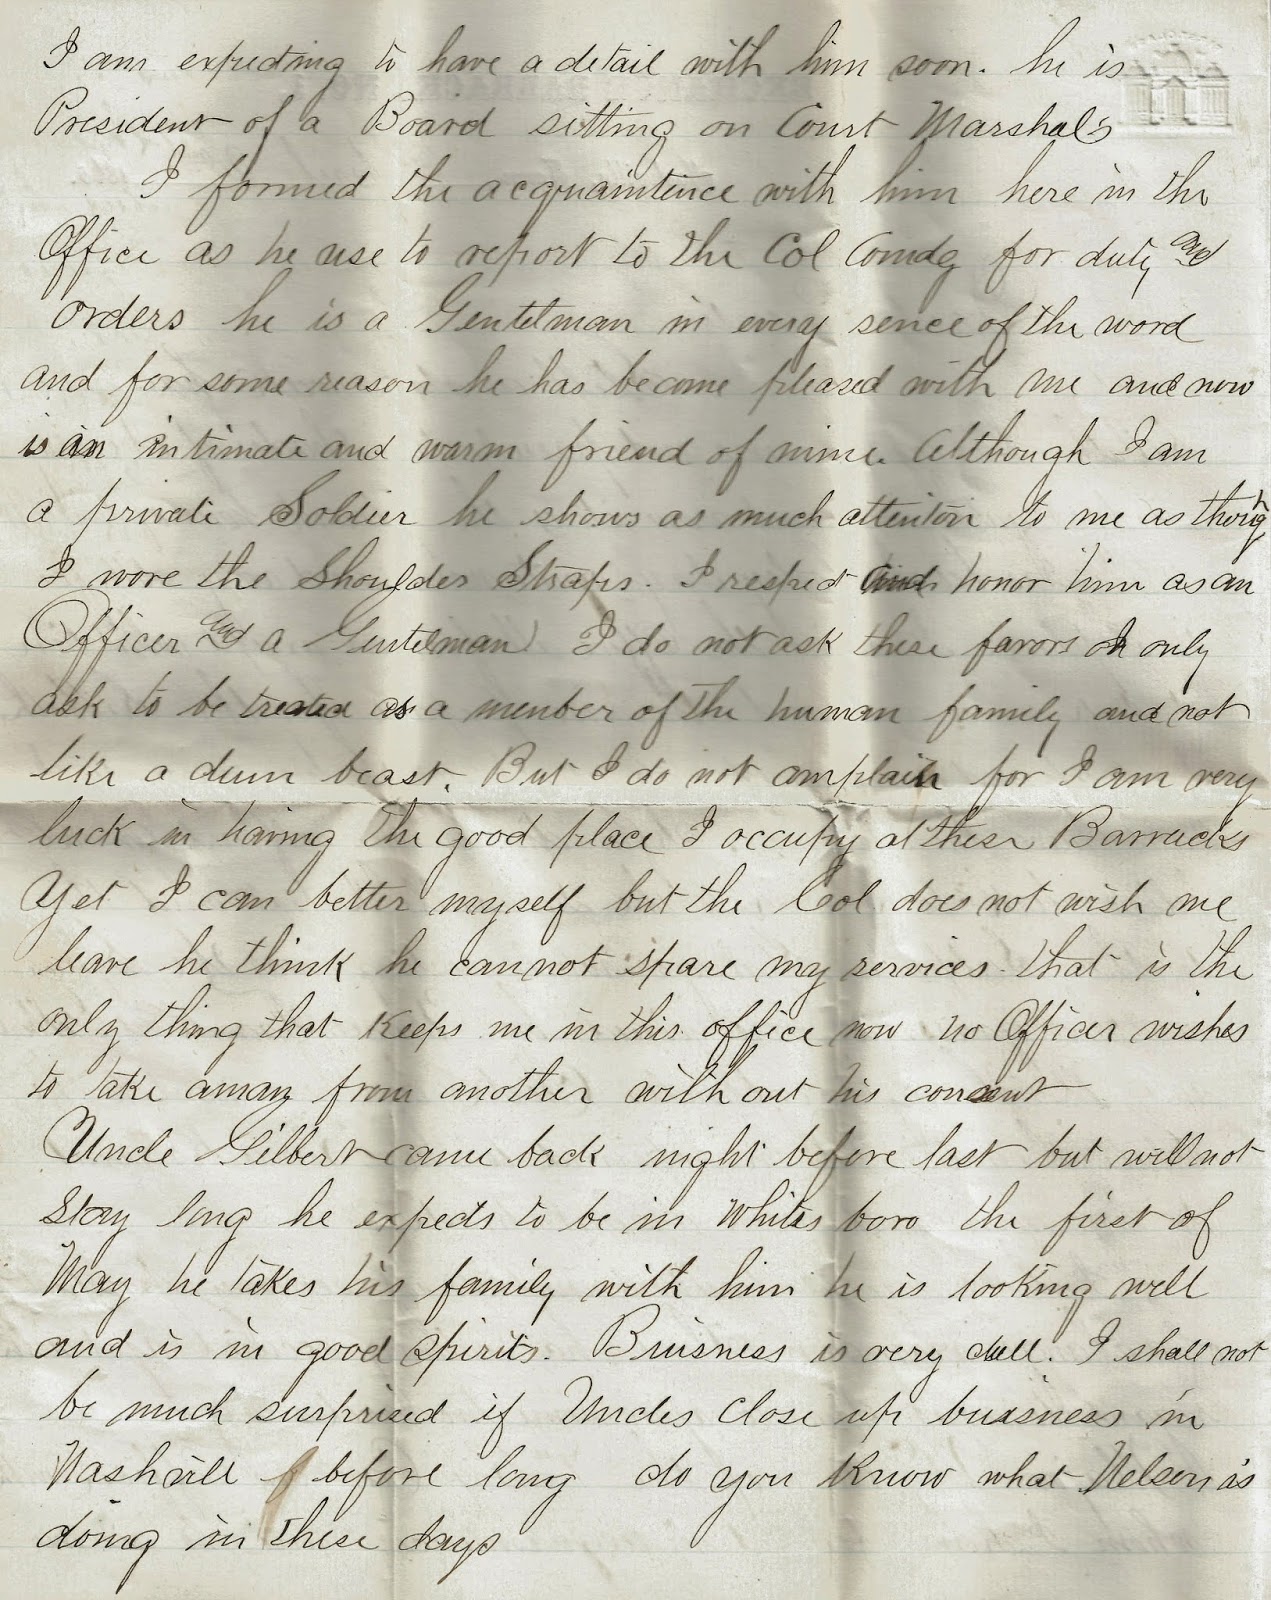 I am expecting to have a detail with him soon. he is
President of a Board sitting on Court Marshals
I formed the acquaintence with him here in the
Office as he use to report to the Col Comdg for duty and
orders he is a Gentelman in every sence of the word
and for some reason he has become pleased with me and now
is an intimate and warm friend of mine. Although I am
a private Soldier he shows as much attention to me as though
I wore the Shoulder Straps. I respect and honor him as an
Officer and a Gentelman I do not ask these favors only
ask to be treated as a member of the human family and not
like a dum beast. But I do not complain for I am very
luck in having the good place I occupy at these Barracks
Yet I can better myself but the Col does not wish me
leave he think he cannot spare my services. that is the
only thing that Keeps me in this office now no Officer wishes
to take away from another with out his consent
Uncle Gilbert came back night before last but will not
stay long he expects to be in Whites boro the first of
May he takes his family with him he is looking well
and is in good spirits. Buisness is very dull. I shall not
be much surprised if Uncles Close up buisness in
Nashville before long do you Know what Nelson is
doing in these days